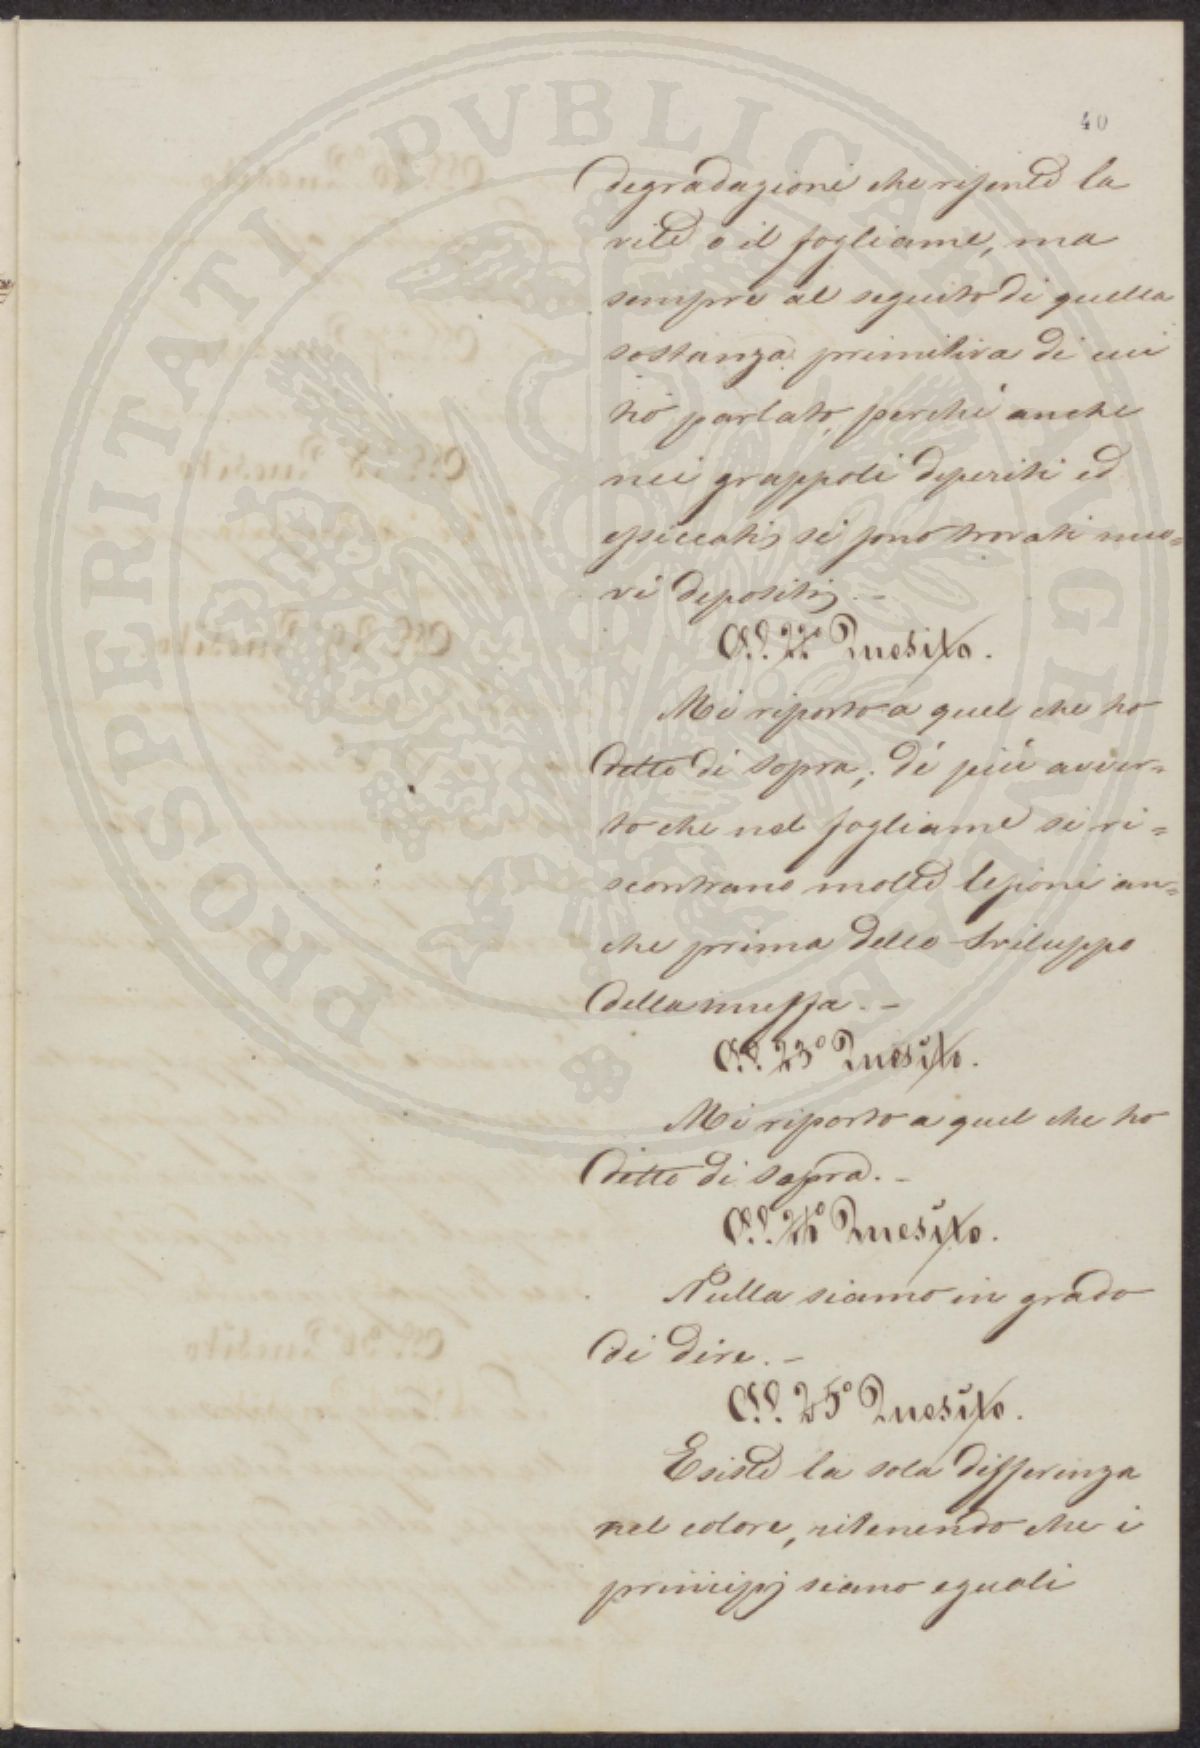 40
degradazione che risente la
vite o il fogliame, ma
sempre al seguito di quella
sostanza primitiva di cui
ho parlato, perché anche
nei grappoli deperiti ed
essiccati, si sono trovati nuo=
vi depositi.-
Al 22º Quesito.
Mi riporto a quel che ho
detto di sopra; di più avver=
to che nel fogliame si ri=
scontrano molte lesioni an=
che prima dello sviluppo
della muffa.-
Al 23º Quesito.
Mi riporto a quel che ho
detto di sopra.-
Al 24º Quesito.
Nulla siamo in grado
di dire.-
Al 25º Quesito.
Esiste la sola differenza
nel colore, ritenendo che i
principj siano eguali
PROSPERITATI PVBLICAE AVGENDAE